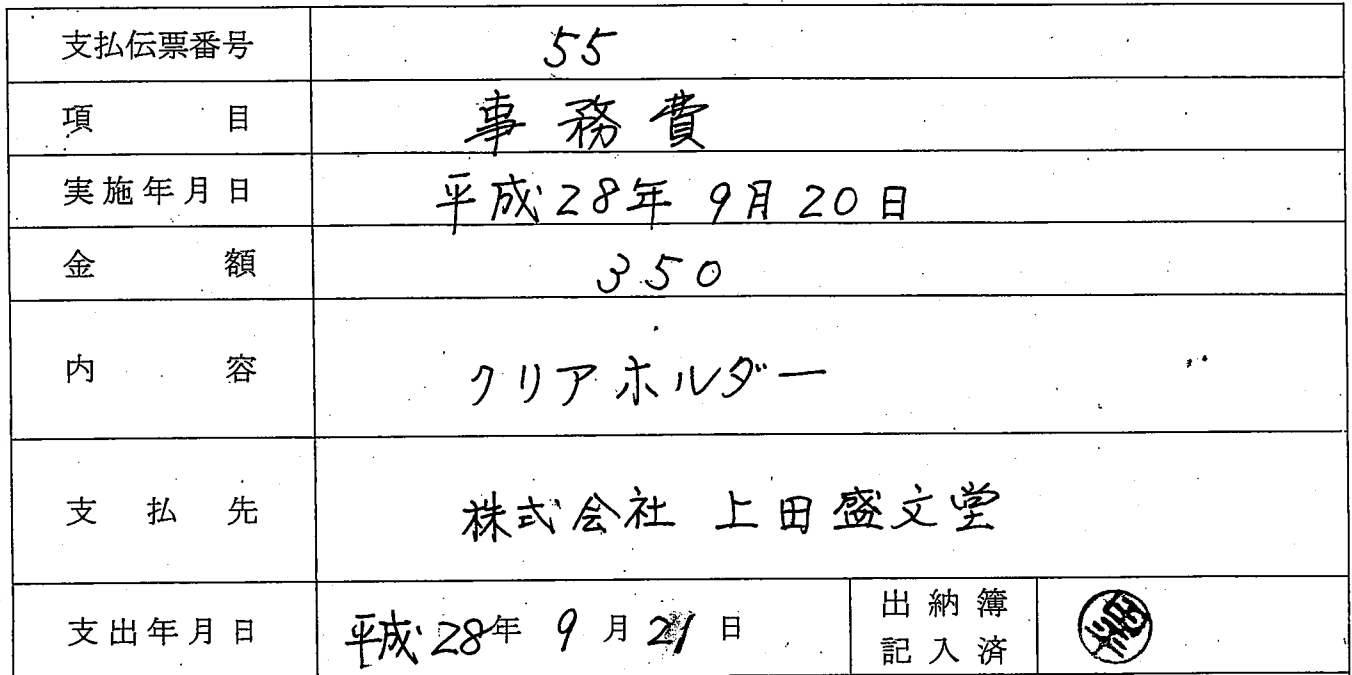 支払伝票番号 55
項目 事務費
実施年月日 平成28年9月20日
金額 350
内容 クリアホルダー
支払先 株式会社 上田盛文堂
支出年月日 平成28年9月21日 出納簿
記入済